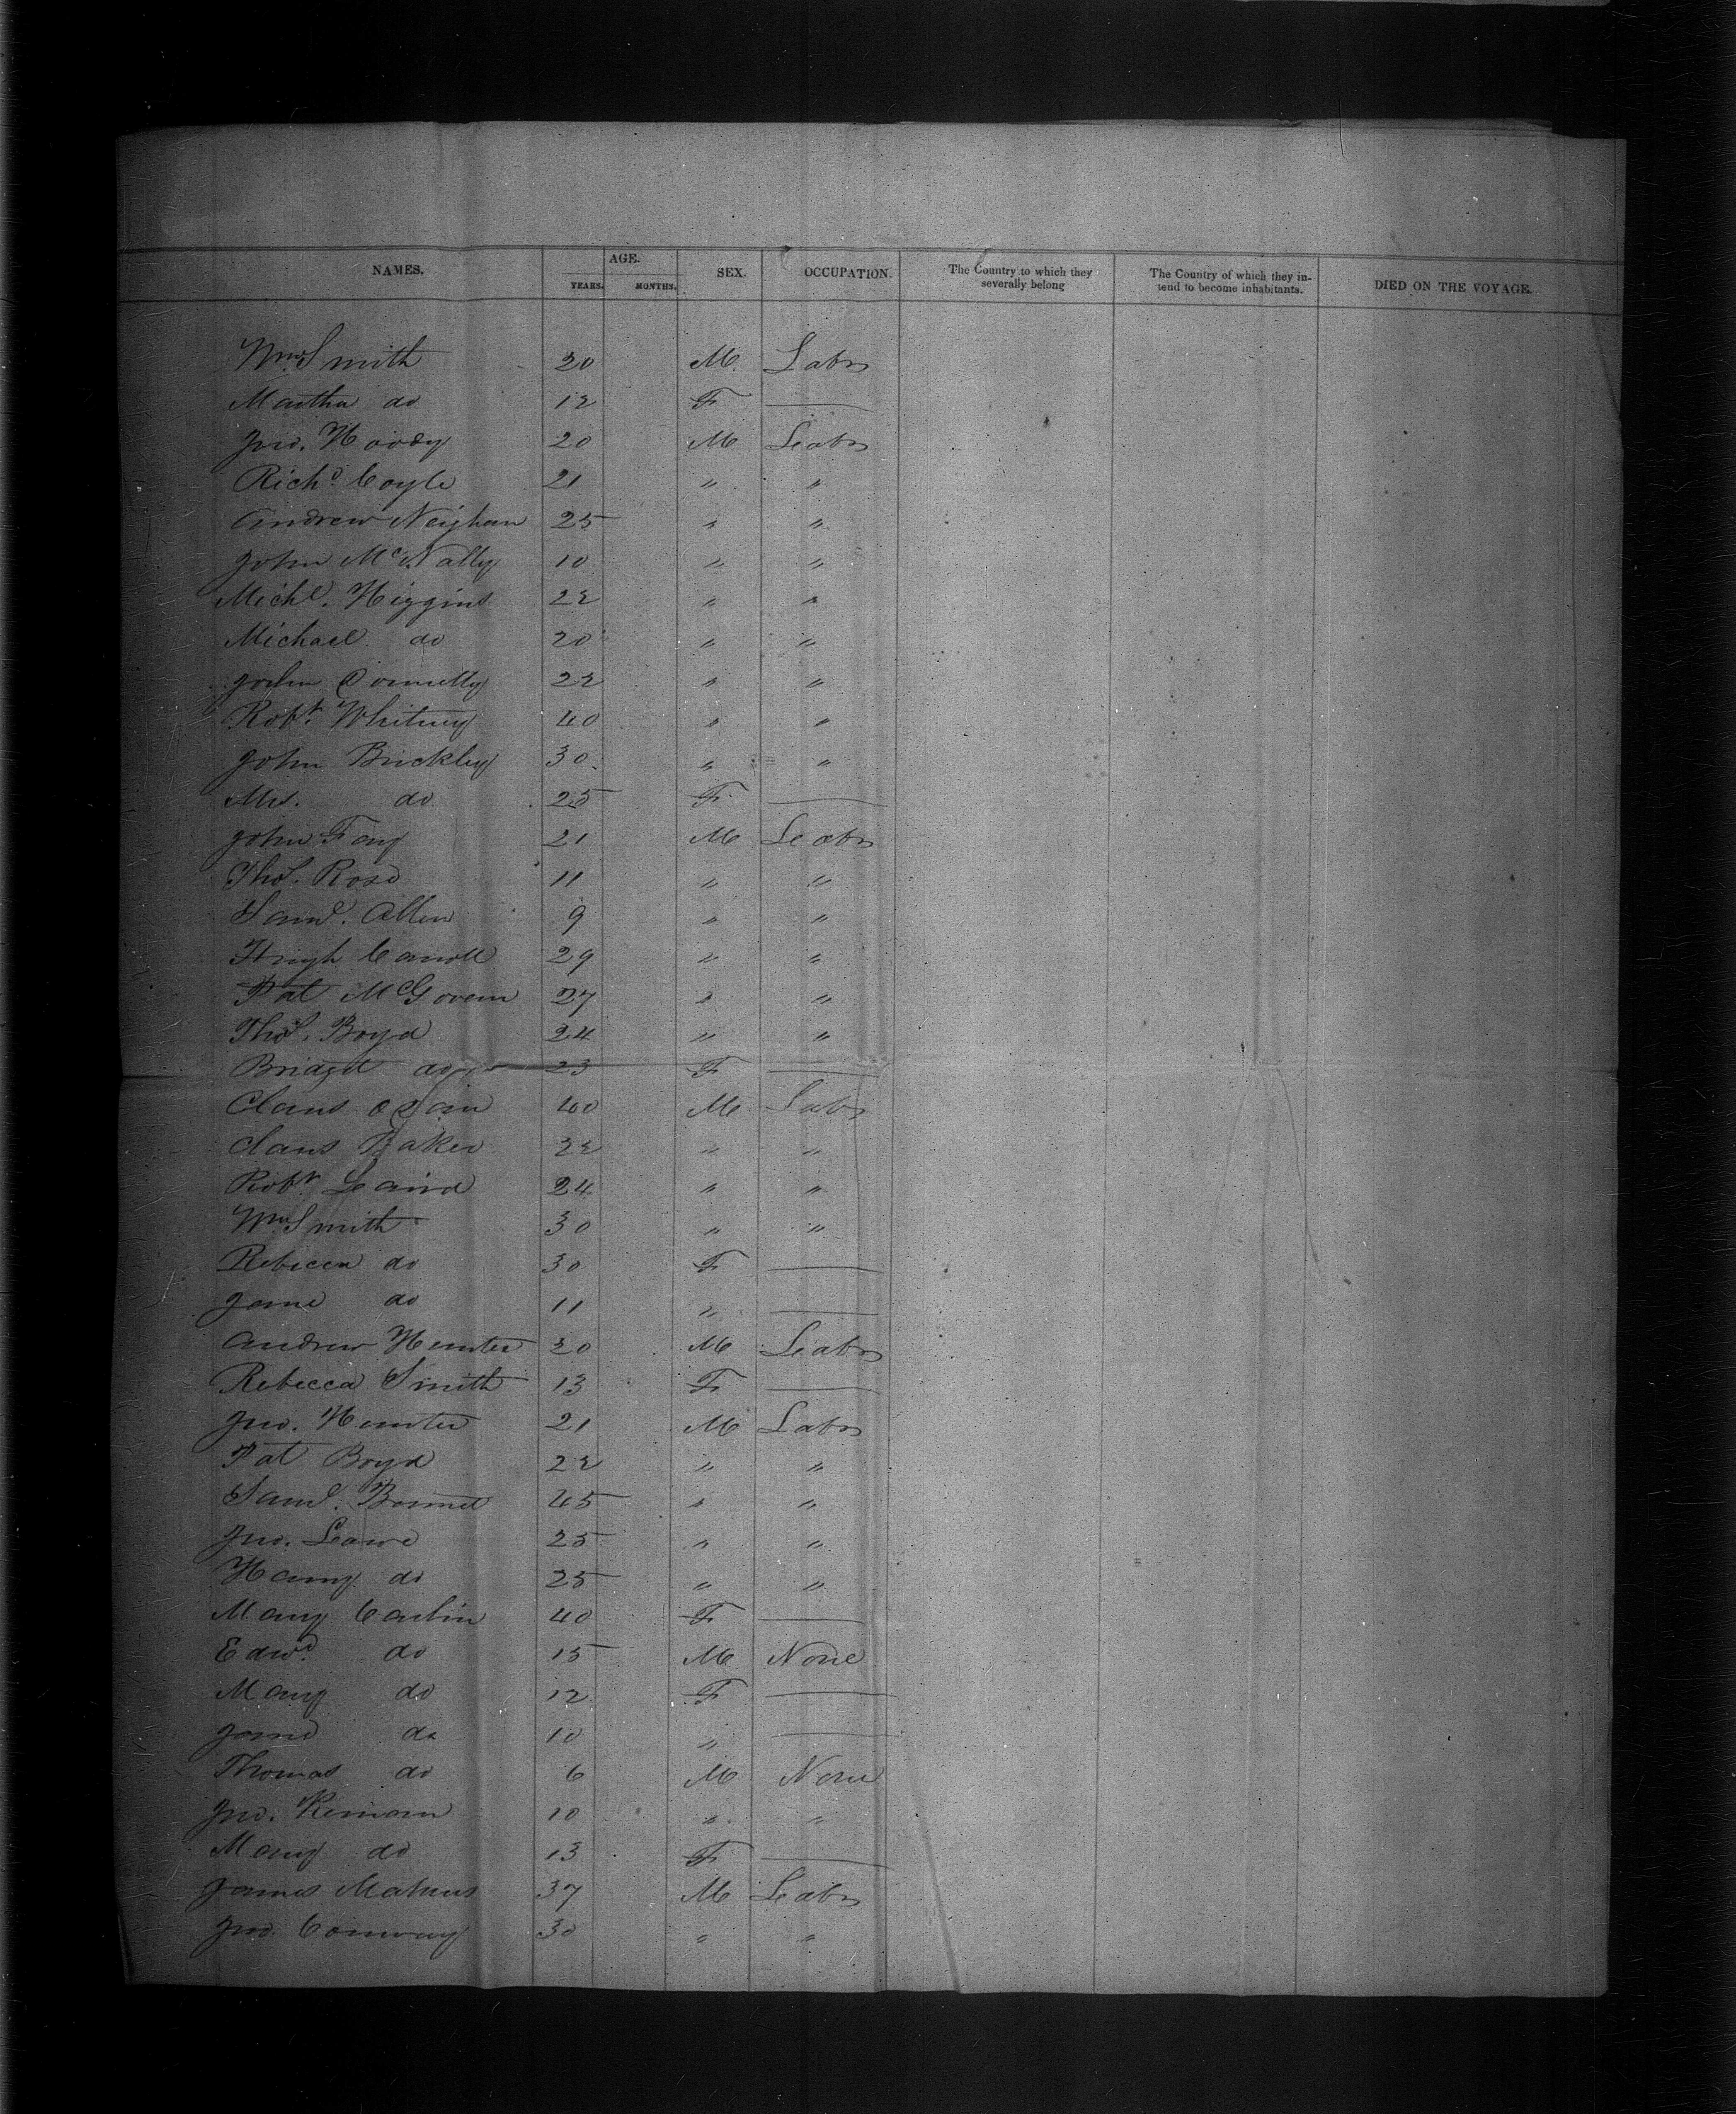 NAMES. AGE. SEX. OCCUPATION. The Country to which they severally belong The Country of which they in- tend to become inhabitants. DIED ON THE VOYAGE.
YEARS. MONTHS.
Wm. Smith 20 M. Labr
Martha do 12 F —
Jno. Hoody 20 M Labr
Richd. Coyle 21 " "
Andrew Neighan 25 " "
John McNally 10 " "
Michl. Higgins 22 " "
Michael do 20 " "
John Connelly 22 " "
Robt. Whitney 40 " "
John Brickley 30 " "
Mrs. do 25 F —
John Fay 21 M Labr
Thos. Rose 11 " "
Saml. Allen 9 " "
Hugh Carroll 29 " "
Pat McGovern 27 " "
Thos. Boyd 24 " "
Bridgt do 23 F —
Claus 40 M Labr
Claus Baker 22 " "
Robt Laird 24 " "
Wm Smith 30 " "
Rebecca do 30 F —
Jane do 11 " —
Andrew Hunter 20 M Labr
Rebecca Smith 13 F —
Jno. Hunter 21 M Labr
Pat Boyd 22 " "
Saml. 45 " "
Jno. Lowe 25 " "
do 25 " "
Mary Carlin 40 F —
Edwd. do 15 M None
Mary do 12 F —
Jane do 10 " —
Thomas do 6 M None
Jno. 10 " "
Mary do 13 F —
James 37 M Labr
Jno. Conway 30 " "